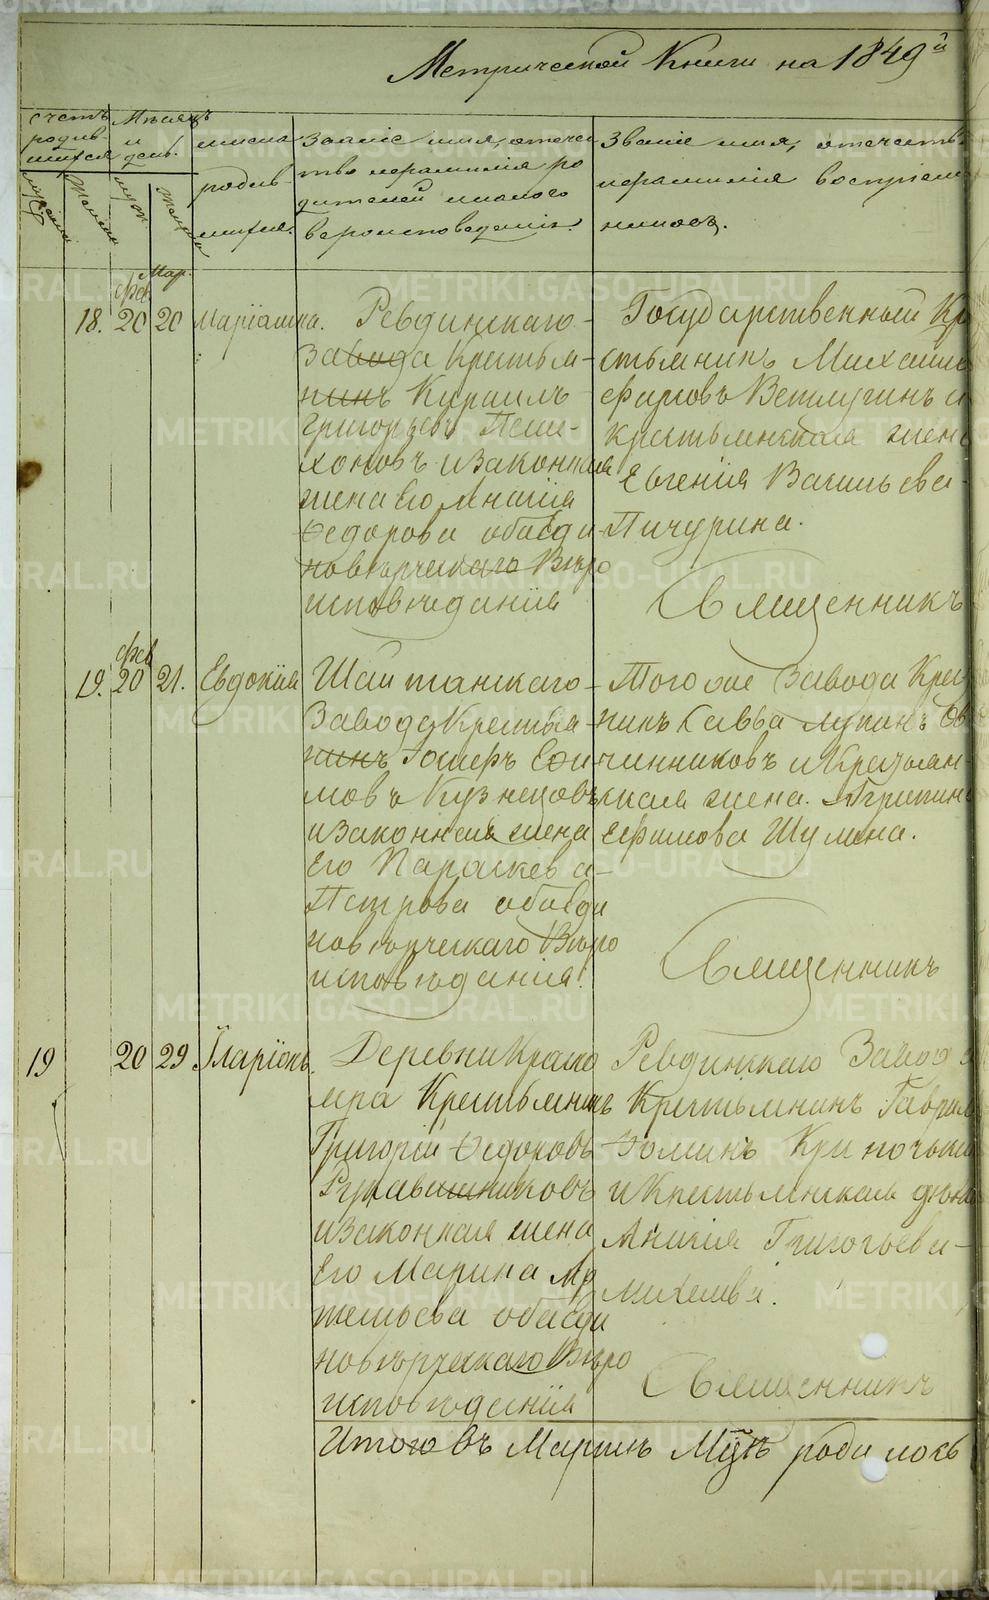 Метрической Книги на 1849й
счетъ родив-шихся
мужеска
женска
Мѣсяцъ и день.
имена родив-шихся.
Званіе имя, отече
ство и фамилія ро
дителей и какого
вѣроисповѣданія.
Званіе имя, отечеств
и фамилія воспріем
никовъ.
Фев Мар.
18. 20 20 Маріамна.
Ревдинскаго
Завода Крестья-
нинъ Кирилъ
Григорьевъ Пеш-
хоновъ и законная
жена его Анисія
Федорова оба еди
новѣрческаго Вѣро
исповѣданія
Государственный Кр
стьянинъ Михаилъ
Ветлугинъ и
крестьянская жена
Евгенія Васильева
Пичурина.
Священникъ
Фев
19. 20 21. Евдокія
Шайтанскаго
Завода Крестья-
нинъ Еѳи
мовъ Кузнецовъ
и законная жена
Его Параскева
Петрова оба еди
новѣрческаго Вѣро
исповѣданія.
Того же Завода Крес
нинъ Савва Лукинъ Ов
чинниковъ и Крестьян-
ская жена. Агрипин
Ефимова Шулина.
Священникъ
19 20 29 Іларіонъ.
Деревни Красно
яра Крестьянинъ
Григорій Федоровъ
и Законная жена
Его Марина
оба еди
новѣрческаго Вѣро
исповѣданія
Ревдинскаго Завода
Крестьянинъ Гаврил
Фоминъ
и Крестьянская
Анисія Григорьева
Священникъ
Итого въ Мартѣ Муж родилось